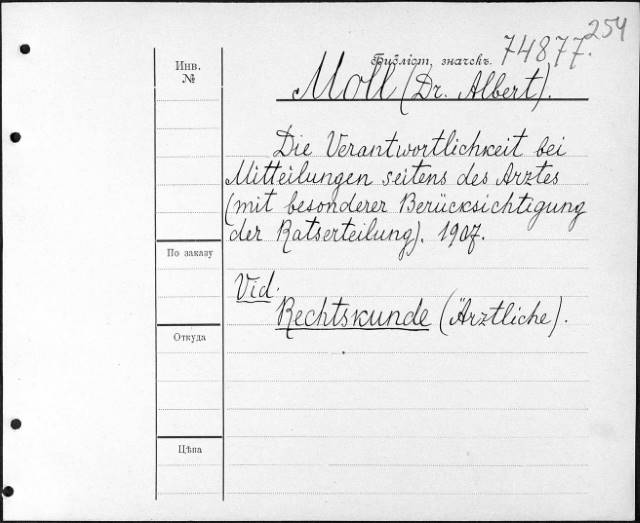 254
74877.
Библіот. значекъ.
Инв.
№
Moll (Dr. Albert).
Die Verantwortlichkeit bei
Mitteilungen seitens des Arztes
(mit besonderer Berücksichtigung
der Ratserteilung). 1907.
По заказу
Vid.
Rechtskunde (Ärztliche).
Откуда
Цѣна